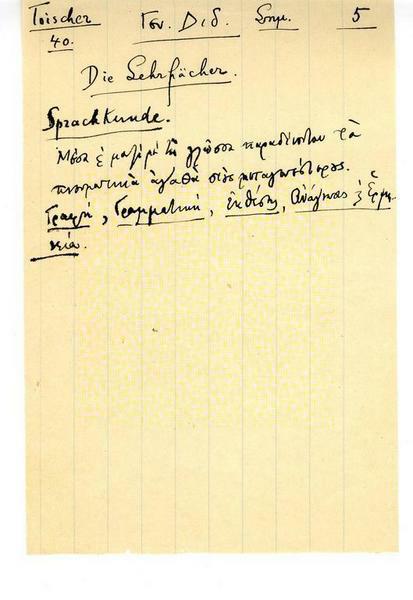 Toischer Γεν. Διδ. Σημ. 5
40.
Die Lehrfächer.
Sprachkunde.
Μέσα καὶ μαζὶ μὲ τὴ γλῶσσα παραδίνονται τὰ
πνευματικὰ ἀγαθὰ στοὺς μεταγενέστερους.
Γραφή, Γραμματική, ἐκθέσεις, Ἀνάγνωσις καὶ Ἑρμη-
νεία.